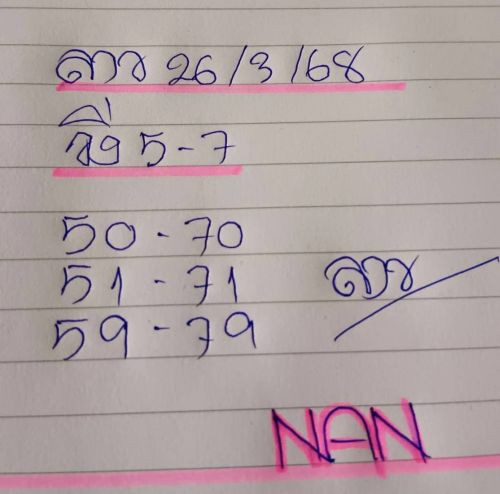 ลาว 26/3/68
วิ่ง 5-7
50-70
51-71
ลาว
59-79
NAN